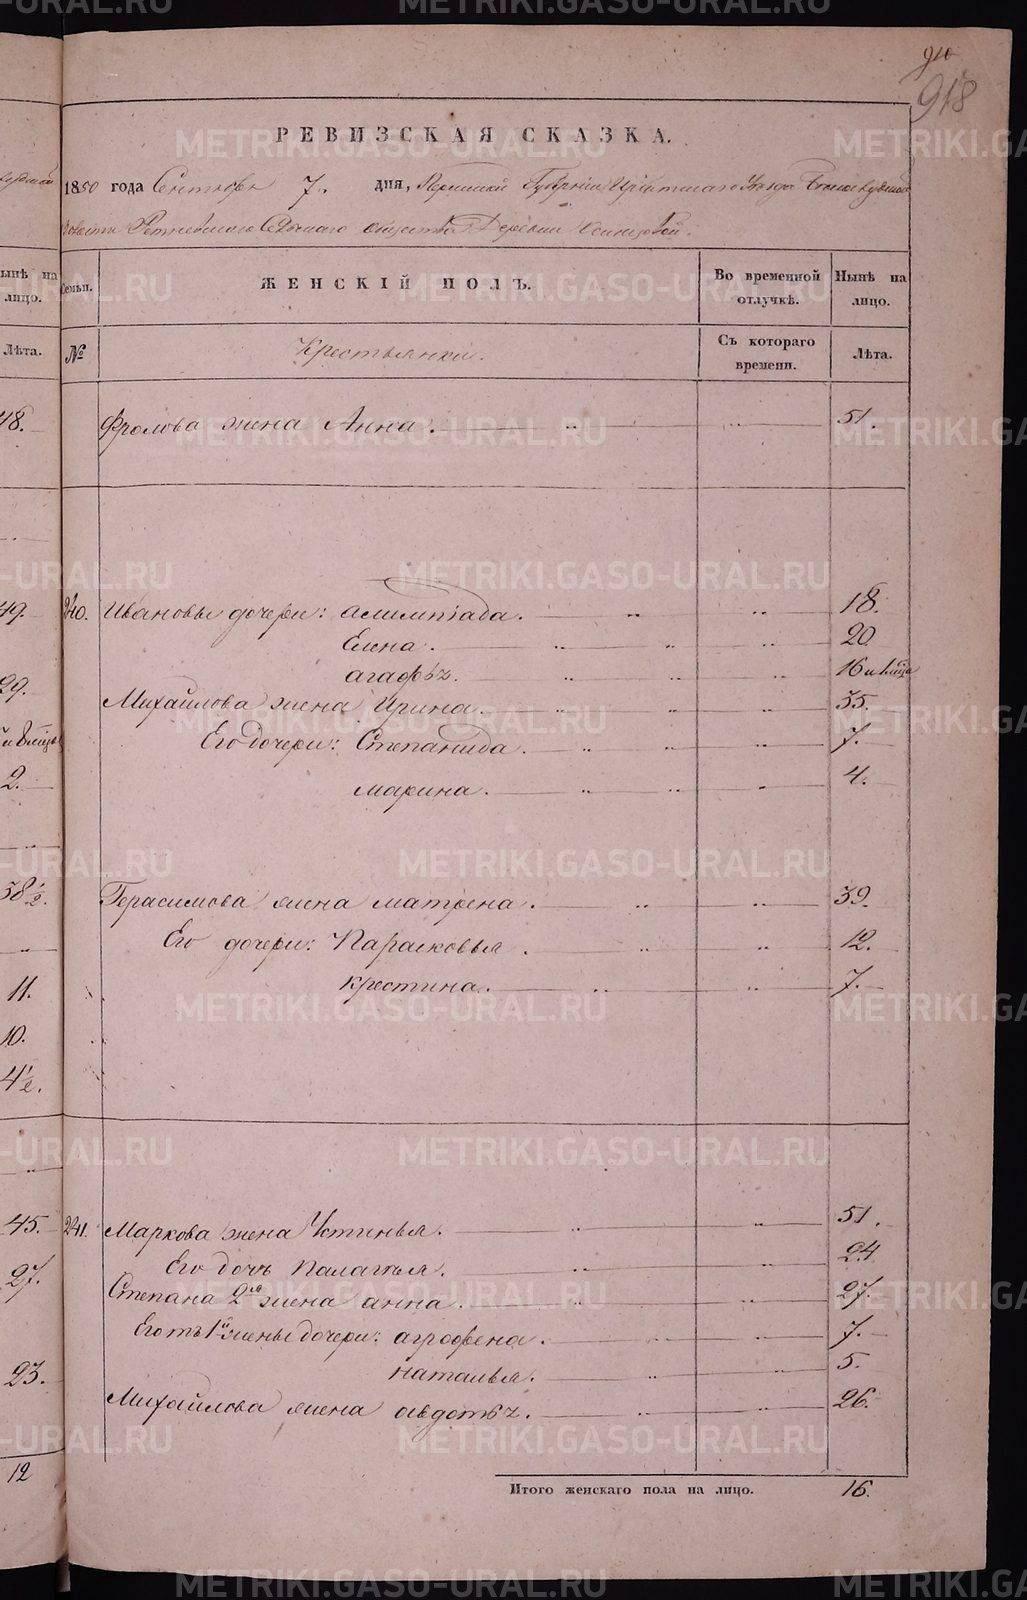 910
918
РЕВИЗСКАЯ СКАЗКА.
1850 года Сентября 7. дня, Пермской Губернiи Ирбитскаго Уѣзда
волости Сельскаго общества Деревни
Семьи.
ЖЕНСКІЙ ПОЛЪ.
Во временной отлучкѣ.
Нынѣ на лицо.
№
Крестьянки.
Съ котораго времени.
Лѣта.
Фролова жена Анна. 51.
240. Ивановы дочери: Алимпiада. 18.
Елена. 20
Агафья. 16
Михайлова жена Ирина. 35.
Его дочери: Степанида. 7.
Марина. 4.
Герасимова жена Матрена. 39.
Его дочери: Парасковья. 12.
Крестина. 7.
241. Маркова жена Устинья. 51.
Его дочь Палагья. 24
Степана 2я жена Анна. 27.
Его отъ 1й жены дочери: Агрофена. 7.
Наталья. 5.
Михайлова жена Авдотья. 26.
Итого женскаго пола на лицо. 16.
Нынѣ на лицо.
Лѣта.
48.
49.
29.
2.
38½.
11.
10.
4½.
45.
27.
23.
12
METRIKI.GASO-URAL.RU